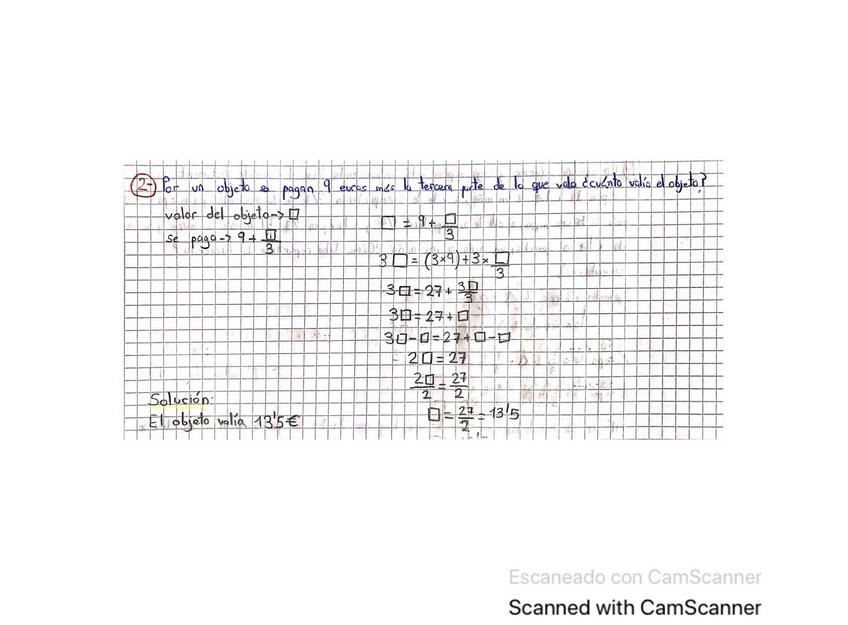 2- Por un objeto se pagan 9 euros más la tercera parte de lo que valía ¿cuánto valía el objeto?
valor del objeto-> □
se paga-> 9 + □/3
□ = 9 + □/3
3□ = (3×9) + 3× □/3
3□ = 27 + 3□/3
3□ = 27 + □
3□ - □ = 27 + □ - □
2□ = 27
2□/2 = 27/2
□ = 27/2 = 13'5
Solución:
El objeto valía 13'5€
Escaneado con CamScanner
Scanned with CamScanner